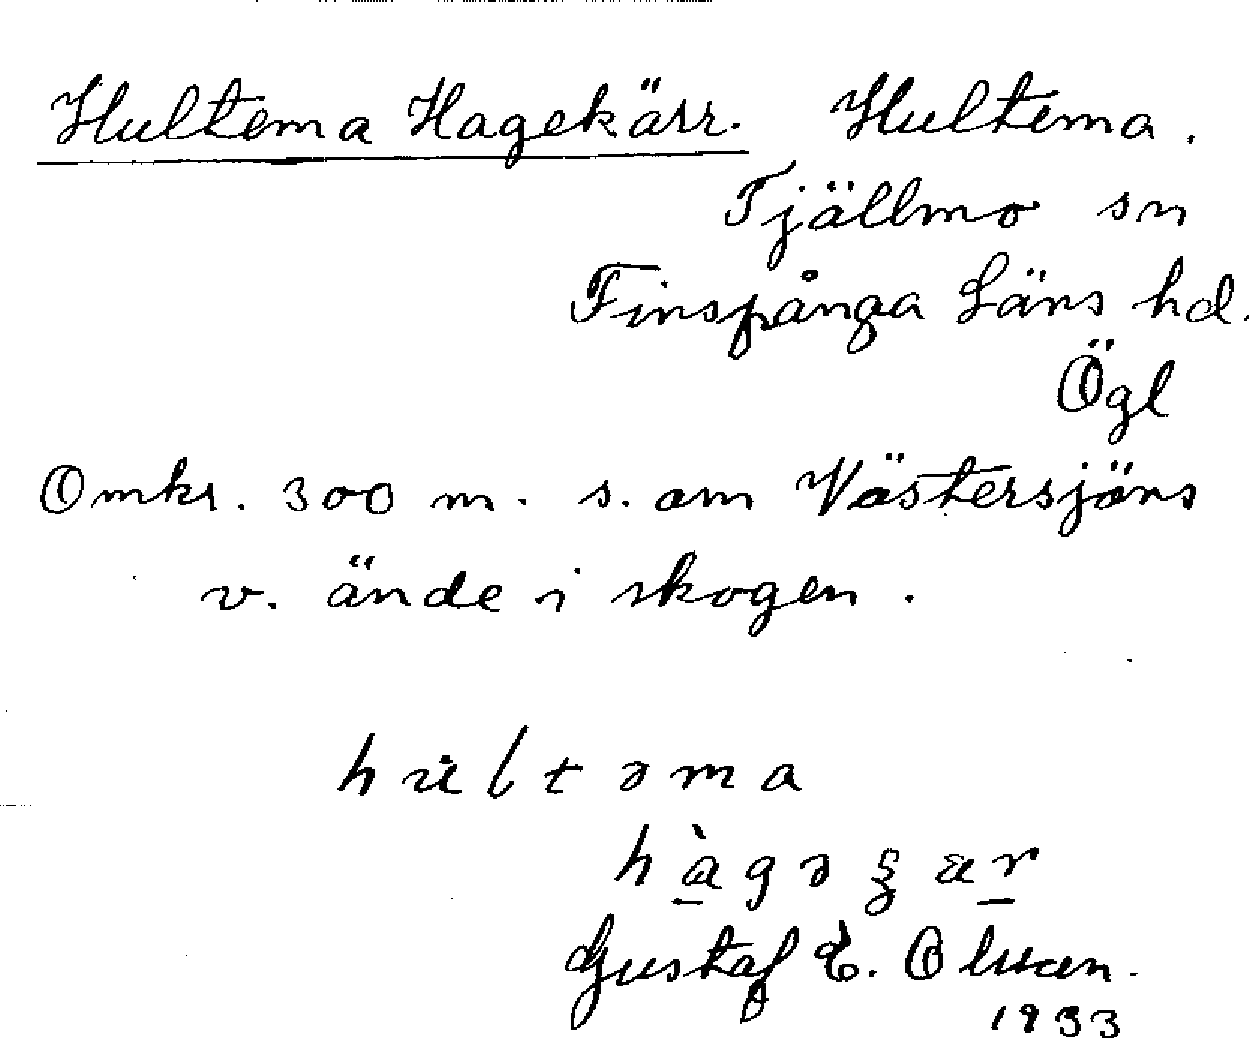 Hultema Hagekärr. Hultema.
Tjällmo sn
Finspånga Läns hd.
Ögl
Omkr. 300 m. s. om Västersjöns
v. ände i skogen.
hultəma
hàgə
Gustaf E. Olsson.
1933